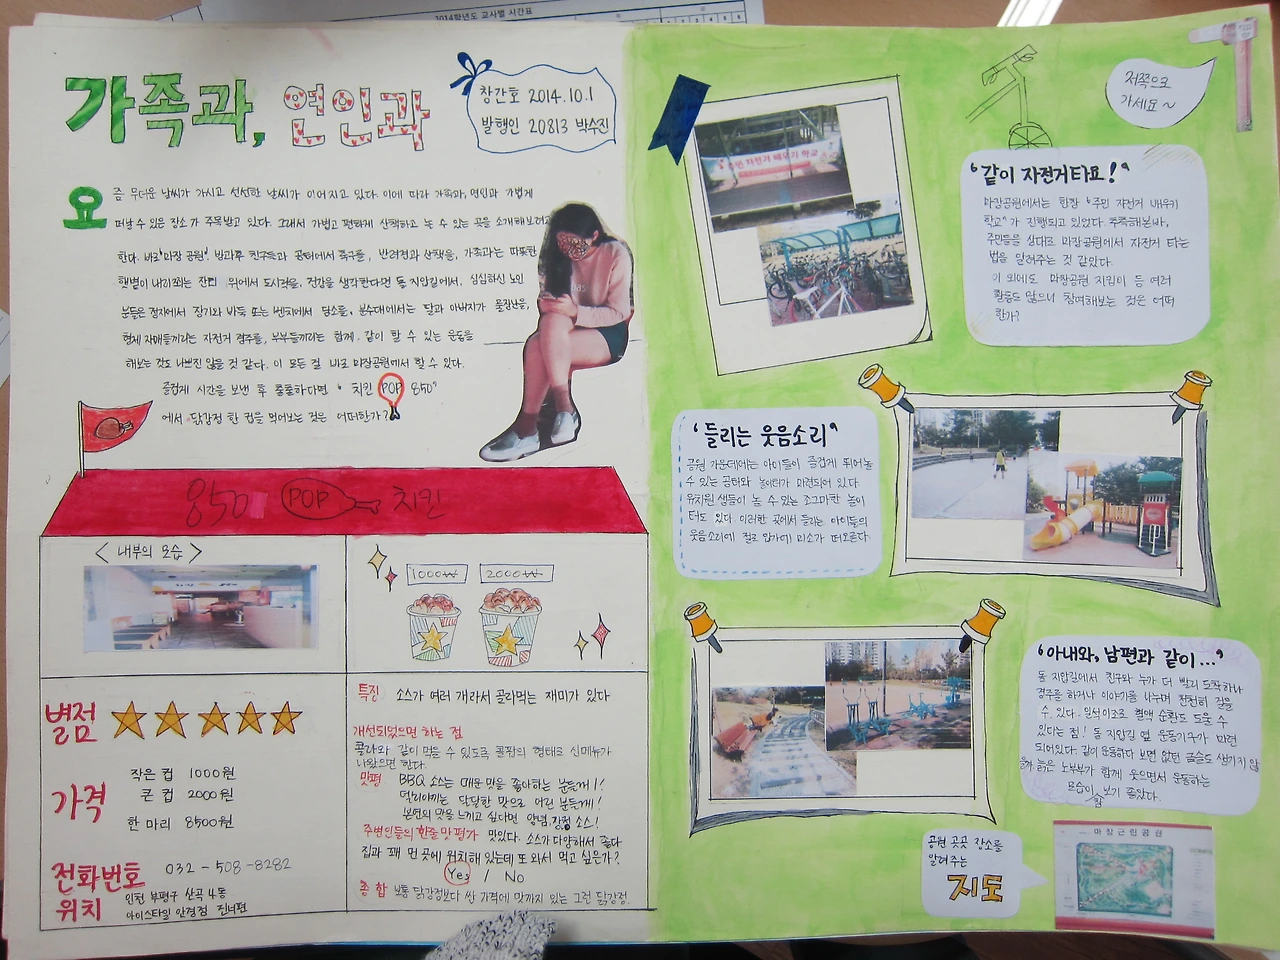 2014학년도 교사별 시간표
가족과, 연인과
창간호 2014.10.1
발행인 20813 박수진
요즘 무더운 날씨가 가시고 선선한 날씨가 이어지고 있다. 이에 따라 가족과, 연인과 가볍게
떠날 수 있은 장소가 주목받고 있다. 그래서 가볍고 편하게 산책하고 놀 수 있는 곳을 소개해보려고
한다. 바로 '마장 공원'. 방과후 친구들과 공터에서 축구를, 반려견과 산책을, 가족과는 따뜻한
햇볕이 내리쬐는 잔디 위에서 도시락을, 건강을 생각한다면 돌 지압길에서, 심심하신 노인
분들은 정자에서 장기와 바둑 또는 벤치에서 담소를, 분수대에서는 딸과 아버지가 물장난을,
형제 자매들끼리는 자전거 경주를, 부부들끼리는 함께. 같이 할 수 있는 운동을
해보는 것도 나쁘진 않을 것 같다. 이 모든 걸 바로 마장공원에서 할 수 있다.
즐겁게 시간을 보낸 후 출출하다면 "치킨 POP 850"
에서 닭강정 한 컵을 먹어보는 것은 어떠한가?
850 POP 치킨
<내부의 모습>
1000₩ 2000₩
별점
가격
작은 컵 1000원
큰 컵 2000원
한 마리 8500원
전화번호 032-508-8282
위치 인천 부평구 산곡 4동
아이스타일 안경점 건너편
특징 소스가 여러 개라서 골라먹는 재미가 있다
개선되었으면 하는 점
콜라와 같이 먹을 수 있도록 콜팝의 형태로 신메뉴가
나왔으면 한다.
맛평 BBQ 소스는 매운 맛을 좋아하는 분들께!!
데리야끼는 달달한 맛으로 어린 분들께!
본연의 맛을 느끼고 싶다면 양념, 강정 소스!
주변인들의 한줄 맛평가 맛있다. 소스가 다양해서 좋다
집과 꽤 먼 곳에 위치해 있는데 또 와서 먹고 싶은가?
Yes / No
총합 보통 닭강정보다 싼 가격에 맛까지 있는 그런 닭강정.
저쪽으로
가세요~
주민 자전거 배우기 학교
"같이 자전거타요!"
마장공원에서는 한창 "주민 자전거 배우기
학교"가 진행되고 있었다. 추측해본바,
주민들을 상대로 마장공원에서 자전거 타는
법을 알려주는 것 같았다.
이 외에도 마장공원 지킴이 등 여러
활동도 있으니 참여해보는 것은 어떠
한가?
"들리는 웃음소리"
공원 가운데에는 아이들이 즐겁게 뛰어놀
수 있는 공터와 놀이터가 마련되어 있다
유치원 생들이 놀 수 있는 조그마한 놀이
터도 있다. 이러한 곳에서 들리는 아이들의
웃음소리에 절로 입가에 미소가 떠오른다.
"아내와, 남편과 같이..."
돌 지압길에서 친구와 누가 더 빨리 도착하나
경주를 하거나 이야기를 나누며 천천히 걸을
수 있다. 일석이조로 혈액 순환도 도울 수
있다는 점! 돌 지압길 옆 운동기구가 마련
되어있다. 같이 운동하다 보면 없던 금슬도 생기지 않
을까. 늙은 노부부가 함께 웃으면서 운동하는
모습이 참 보기 좋았다.
공원 곳곳 장소를
알려 주는
지도
마장근린공원